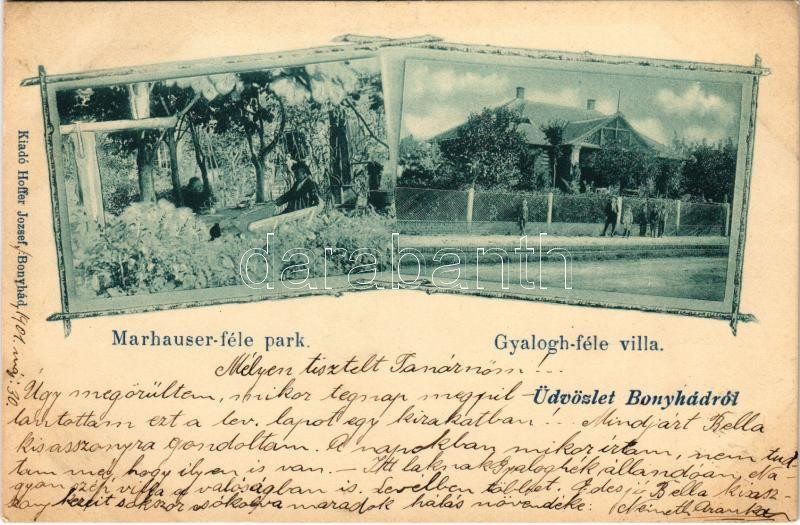 Kiadó Hoffer Jozsef, Bonyhád, 1901. máj. 30.
darabanth
Marhauser-féle park.
Gyalogh-féle villa.
Üdvözlet Bonyhádról
Mélyen tisztelt Tanárnőm!..
Úgy megörültem, mikor tegnap megpil-
lantottam ezt a lev. lapot egy kirakatban!.. Mindjárt Bella
kisasszonyra gondoltam. A napokban mikor irtam, nem tud-
tam meg, hogy ilyen is van. – Itt laknak Gyaloghék állandóan. Na-
gyon szép villa a valóságban is. Levélben többet. Édes jó Bella kisasz-
szony kezeit sokszor csókolva maradok hálás növendéke: Németh Aranka